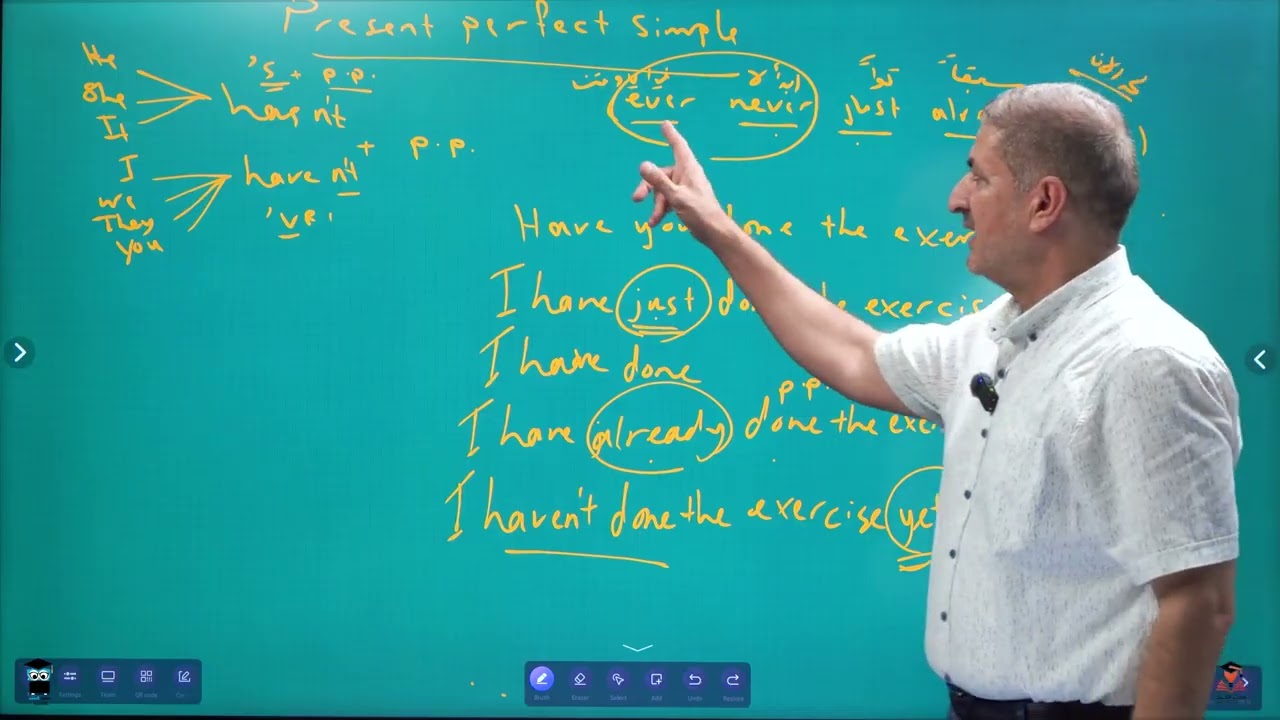 Present perfect simple
He
She
It
's + p.p.
hasn't
I
we
They
you
haven't + p.p.
've
ever never just
Have you done the
I have just the exercise
I have done
p.p.
I have already done the
I haven't done the exercise yet
Settings
QR code
Brush
Eraser
Select
Add
Undo